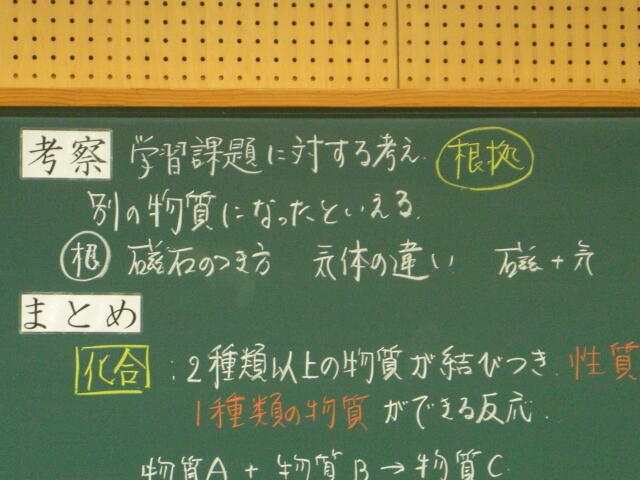 考察 学習課題に対する考え. 根拠
別の物質になったといえる.
根 磁石のつき方 気体の違い 磁+気
まとめ
化合 : 2種類以上の物質が結びつき. 性質
1種類の物質ができる反応.
物質A + 物質B → 物質C